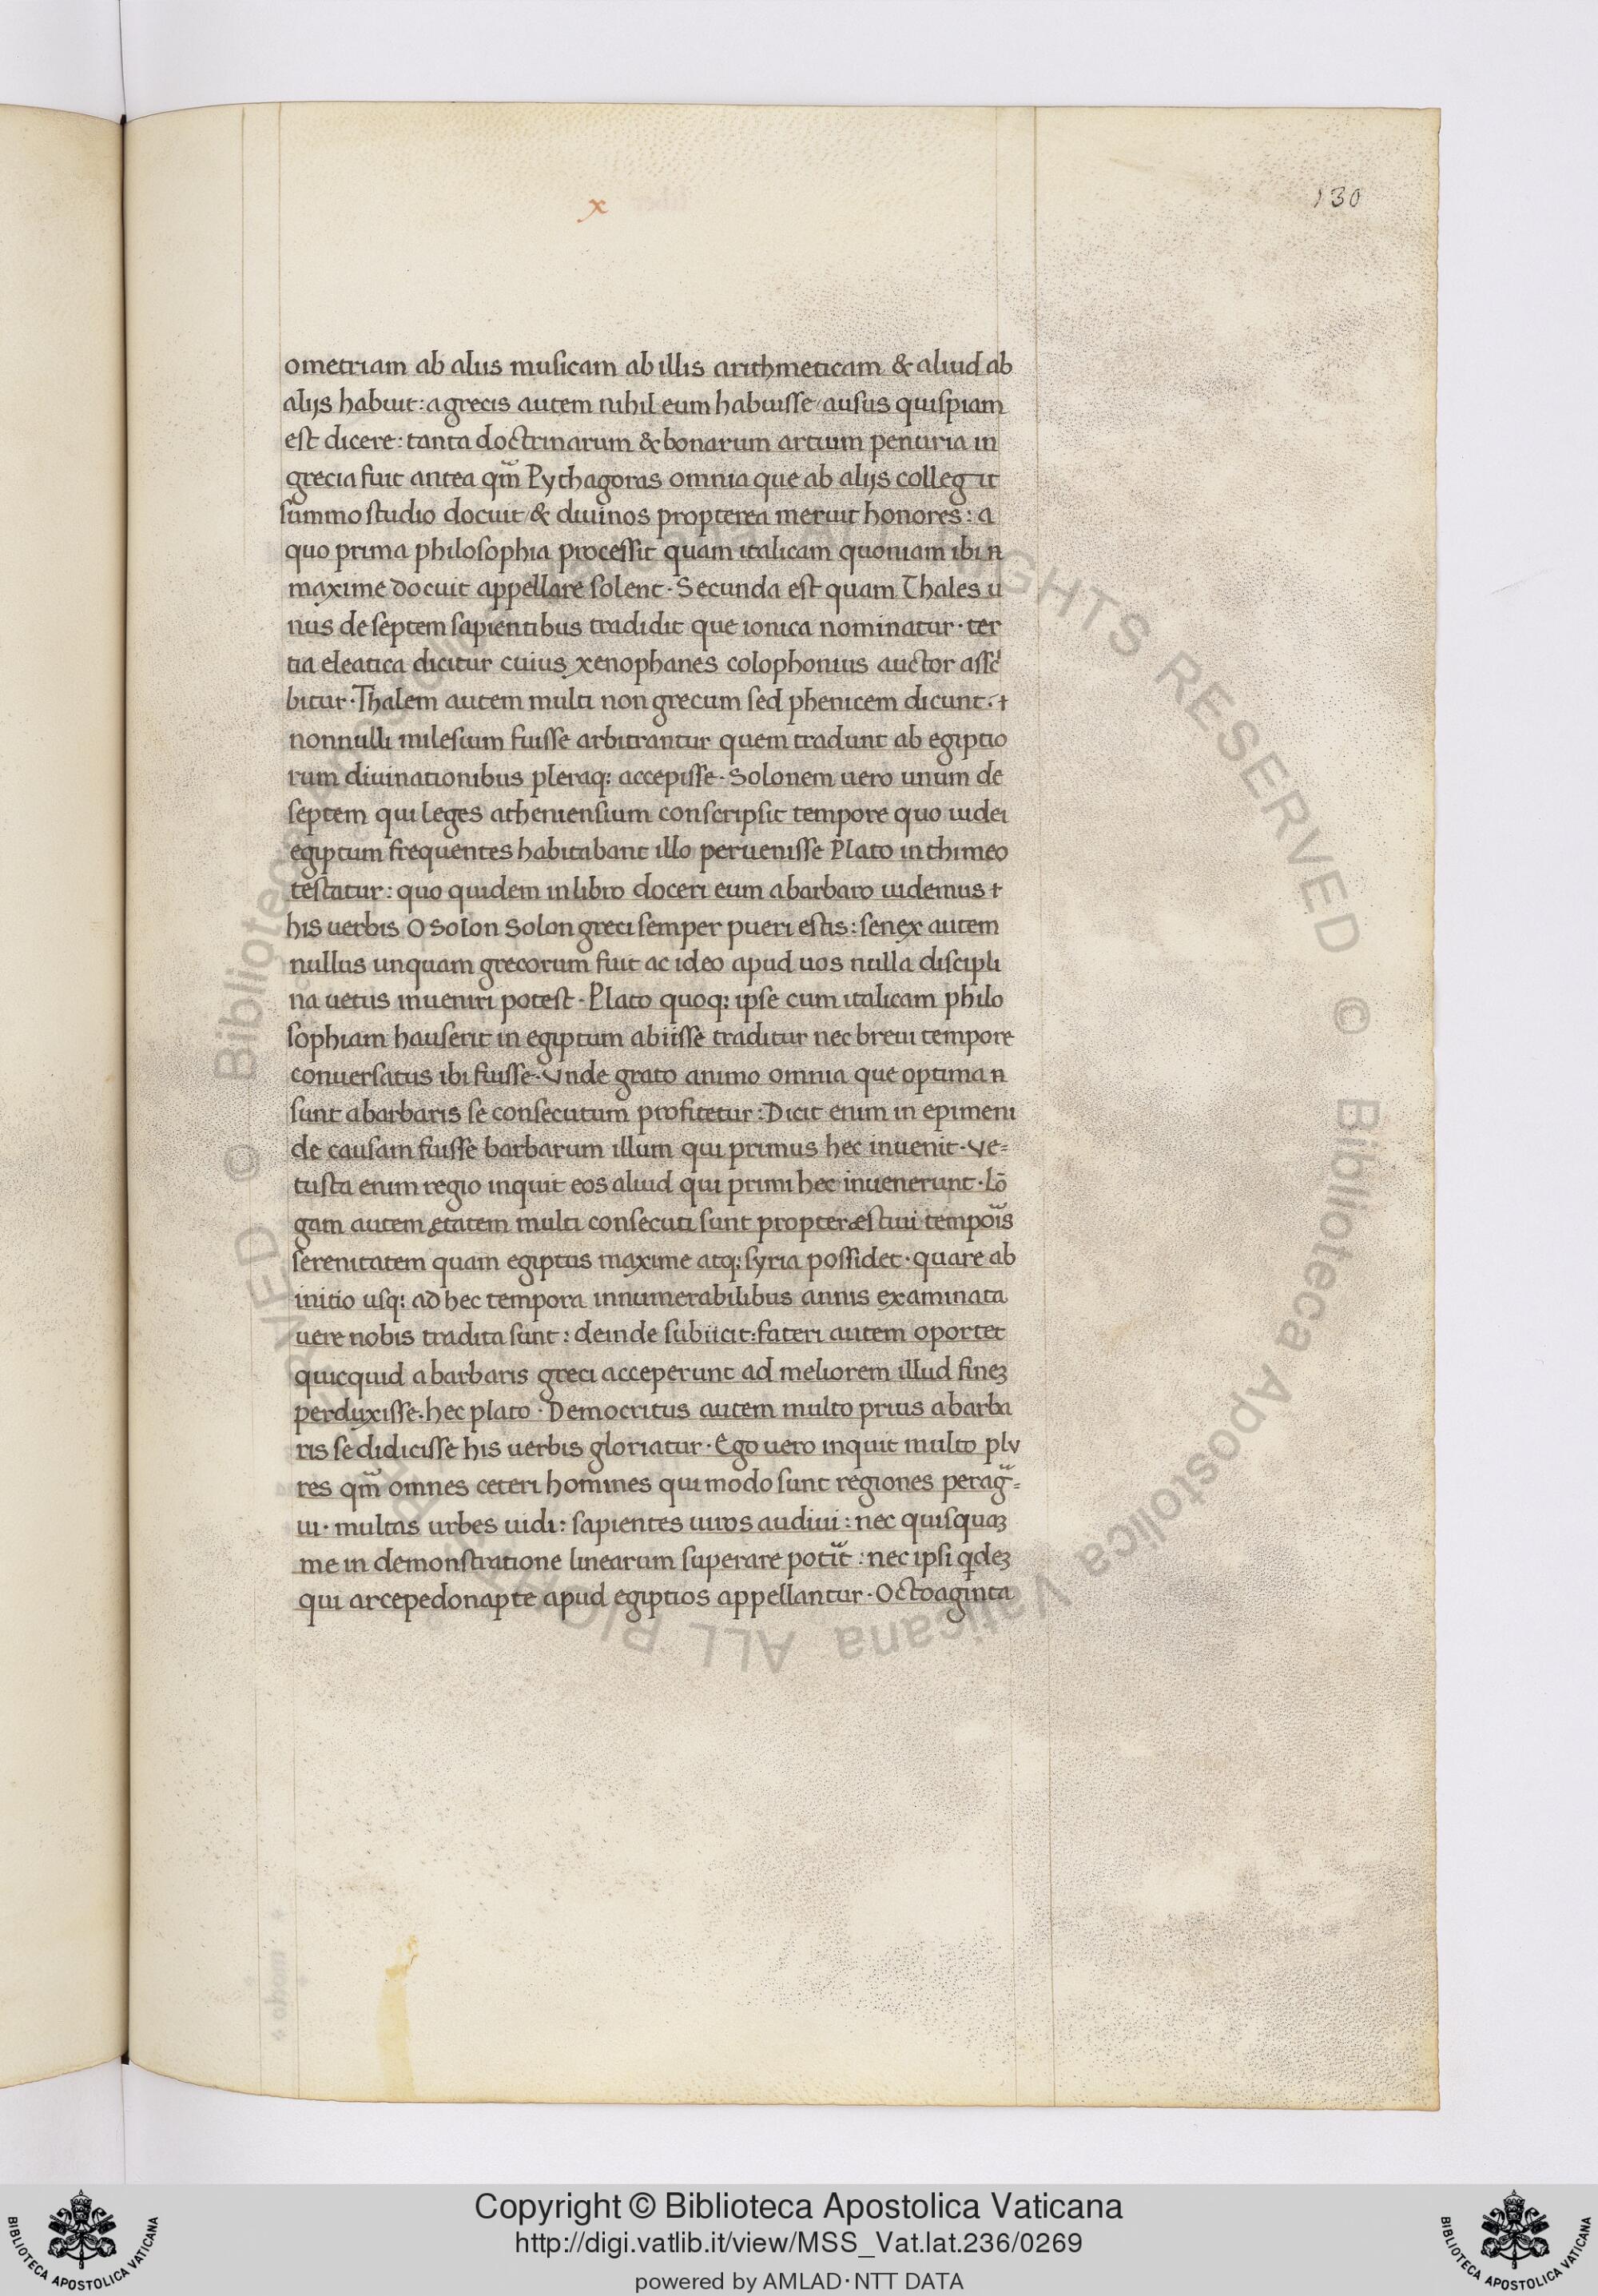 x
130
ometriam ab aliis musicam ab illis arithmeticam & aliud ab
alijs habuit: a grecis autem nihil eum habuisse / ausus quispiam
est dicere: tanta doctrinarum & bonarum artium penuria in
grecia fuit antea qm̃ Pythagoras omnia que ab alijs collegit
summo studio docuit / & diuinos propterea meruit honores: a
quo prima philosophia processit quam italicam quoniam ibi n
maxime docuit appellare solent · Secunda est quam Thales u
nus de septem sapientibus tradidit que ionica nominatur · ter
tia eleatica dicitur cuius xenophanes colophonius auctor assc̓
bitur · Thalem autem multi non grecum sed phenicem dicunt · ⁊
nonnulli milesium fuisse arbitrantur quem tradunt ab egiptio
rum diuinationibus pleraq; accepisse · Solonem uero unum de
septem qui leges atheniensium conscripsit tempore quo iudei
egiptum frequentes habitabant illo peruenisse Plato in thimeo
testatur: quo quidem in libro doceri eum a barbaro uidemus ⁊
his uerbis O Solon Solon greci semper pueri estis: senex autem
nullus unquam grecorum fuit ac ideo apud uos nulla discipli
na uetus inueniri potest · Plato quoq; ipse cum italicam philo
sophiam hauserit in egiptum abiisse traditur nec breui tempore
conuersatus ibi fuisse · Vnde grato animo omnia que optima n
sunt a barbaris se consecutum profitetur: Dicit enim in epimeni
de causam fuisse barbarum illum qui primus hec inuenit · Ve=
tusta enim regio inquit eos aliud qui primi hec inuenerunt · Lō
gam autem ętatem multi consecuti sunt propter æstiui tempoı̃s
serenitatem quam egiptus maxime atq; syria possidet · quare ab
initio usq; ad hec tempora innumerabilibus annis examinata
uere nobis tradita sunt: deinde subiicit: fateri autem oportet
quicquid a barbaris greci acceperunt ad meliorem illud fineꝫ
perduxisse · hec plato · Democritus autem multo prius a barba
ris se didicisse his uerbis gloriatur · Ego uero inquit multo plv
res qm̃ omnes ceteri homines qui modo sunt regiones perag̃=
ui · multas urbes uidi: sapientes uiros audiui: nec quisquaꝫ
me in demonstratione linearum superare potı̃t: nec ipsi qͥdeꝫ
qui arcepedonapte apud egiptios appellantur · Octoaginta
© Biblioteca Apostolica Vaticana ALL RIGHTS RESERVED © Biblioteca Apostolica Vaticana ALL RIGHTS RESERVED
BIBLIOTECA APOSTOLICA VATICANA
Copyright © Biblioteca Apostolica Vaticana
http://digi.vatlib.it/view/MSS_Vat.lat.236/0269
powered by AMLAD·NTT DATA
BIBLIOTECA APOSTOLICA VATICANA